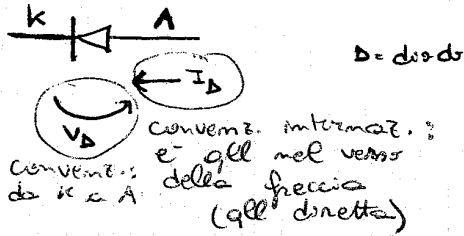 K A
D = diodo
I_D
V_D
convenz. internaz.:
è nel verso
della freccia
( diretta)
convenz.:
da K a A